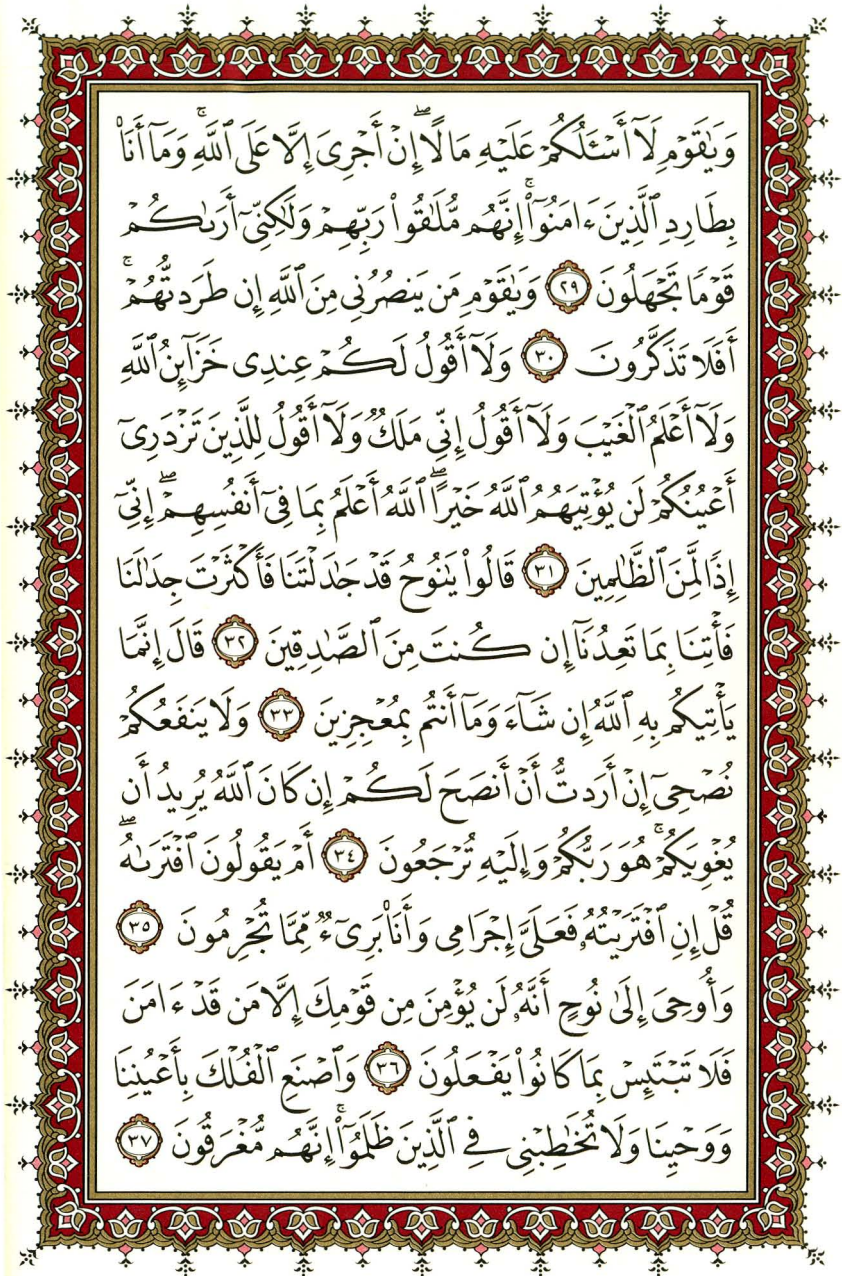 وَيَٰقَوْمِ لَآ أَسْـَٔلُكُمْ عَلَيْهِ مَالًا ۖ إِنْ أَجْرِىَ إِلَّا عَلَى ٱللَّهِ ۚ وَمَآ أَنَا۠
بِطَارِدِ ٱلَّذِينَ ءَامَنُوٓا۟ ۚ إِنَّهُم مُّلَٰقُوا۟ رَبِّهِمْ وَلَٰكِنِّىٓ أَرَىٰكُمْ
قَوْمًا تَجْهَلُونَ ٢٩ وَيَٰقَوْمِ مَن يَنصُرُنِى مِنَ ٱللَّهِ إِن طَرَدتُّهُمْ ۚ
أَفَلَا تَذَكَّرُونَ ٣٠ وَلَآ أَقُولُ لَكُمْ عِندِى خَزَآئِنُ ٱللَّهِ
وَلَآ أَعْلَمُ ٱلْغَيْبَ وَلَآ أَقُولُ إِنِّى مَلَكٌ وَلَآ أَقُولُ لِلَّذِينَ تَزْدَرِىٓ
أَعْيُنُكُمْ لَن يُؤْتِيَهُمُ ٱللَّهُ خَيْرًا ۖ ٱللَّهُ أَعْلَمُ بِمَا فِىٓ أَنفُسِهِمْ ۖ إِنِّىٓ
إِذًا لَّمِنَ ٱلظَّٰلِمِينَ ٣١ قَالُوا۟ يَٰنُوحُ قَدْ جَٰدَلْتَنَا فَأَكْثَرْتَ جِدَٰلَنَا
فَأْتِنَا بِمَا تَعِدُنَآ إِن كُنتَ مِنَ ٱلصَّٰدِقِينَ ٣٢ قَالَ إِنَّمَا
يَأْتِيكُم بِهِ ٱللَّهُ إِن شَآءَ وَمَآ أَنتُم بِمُعْجِزِينَ ٣٣ وَلَا يَنفَعُكُمْ
نُصْحِىٓ إِنْ أَرَدتُّ أَنْ أَنصَحَ لَكُمْ إِن كَانَ ٱللَّهُ يُرِيدُ أَن
يُغْوِيَكُمْ ۚ هُوَ رَبُّكُمْ وَإِلَيْهِ تُرْجَعُونَ ٣٤ أَمْ يَقُولُونَ ٱفْتَرَىٰهُ ۖ
قُلْ إِنِ ٱفْتَرَيْتُهُۥ فَعَلَىَّ إِجْرَامِى وَأَنَا۠ بَرِىٓءٌ مِّمَّا تُجْرِمُونَ ٣٥
وَأُوحِىَ إِلَىٰ نُوحٍ أَنَّهُۥ لَن يُؤْمِنَ مِن قَوْمِكَ إِلَّا مَن قَدْ ءَامَنَ
فَلَا تَبْتَئِسْ بِمَا كَانُوا۟ يَفْعَلُونَ ٣٦ وَٱصْنَعِ ٱلْفُلْكَ بِأَعْيُنِنَا
وَوَحْيِنَا وَلَا تُخَٰطِبْنِى فِى ٱلَّذِينَ ظَلَمُوٓا۟ ۚ إِنَّهُم مُّغْرَقُونَ ٣٧